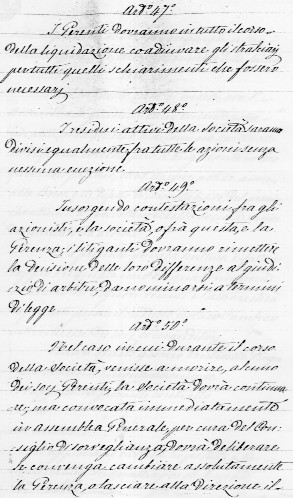 Art.º 47.º
I Gerenti dovranno in tutto il corso
della liquidazione coadiuvare gli stralciarj
per tutti quelli schiarimenti che fossero
necessarj
Art.º 48.º
I residui attivi della Società saranno
divisi egualmente fra tutte le azioni senza
nessuna eccezione.
Art.º 49.º
Insorgendo contestazioni fra gli
azionisti, e la società, o fra questa, e la
Gerenza; i litiganti dovranno rimettere
la decisione delle loro differenze al giudi
zio di arbitri, da nominarsi a termini
di legge
Art.º 50.º
Nel caso in cui durante il corso
della Società, venisse a morire, alcuno
dei socj Gerenti, la Società dovrà continua
re, ma convocata immediatamente
in assemblea Generale, per cura del Con
siglio di sorveglianza, dovrà deliberare
se convenga cambiare assolutamente
la Gerenza, o lasciare alla direzione il